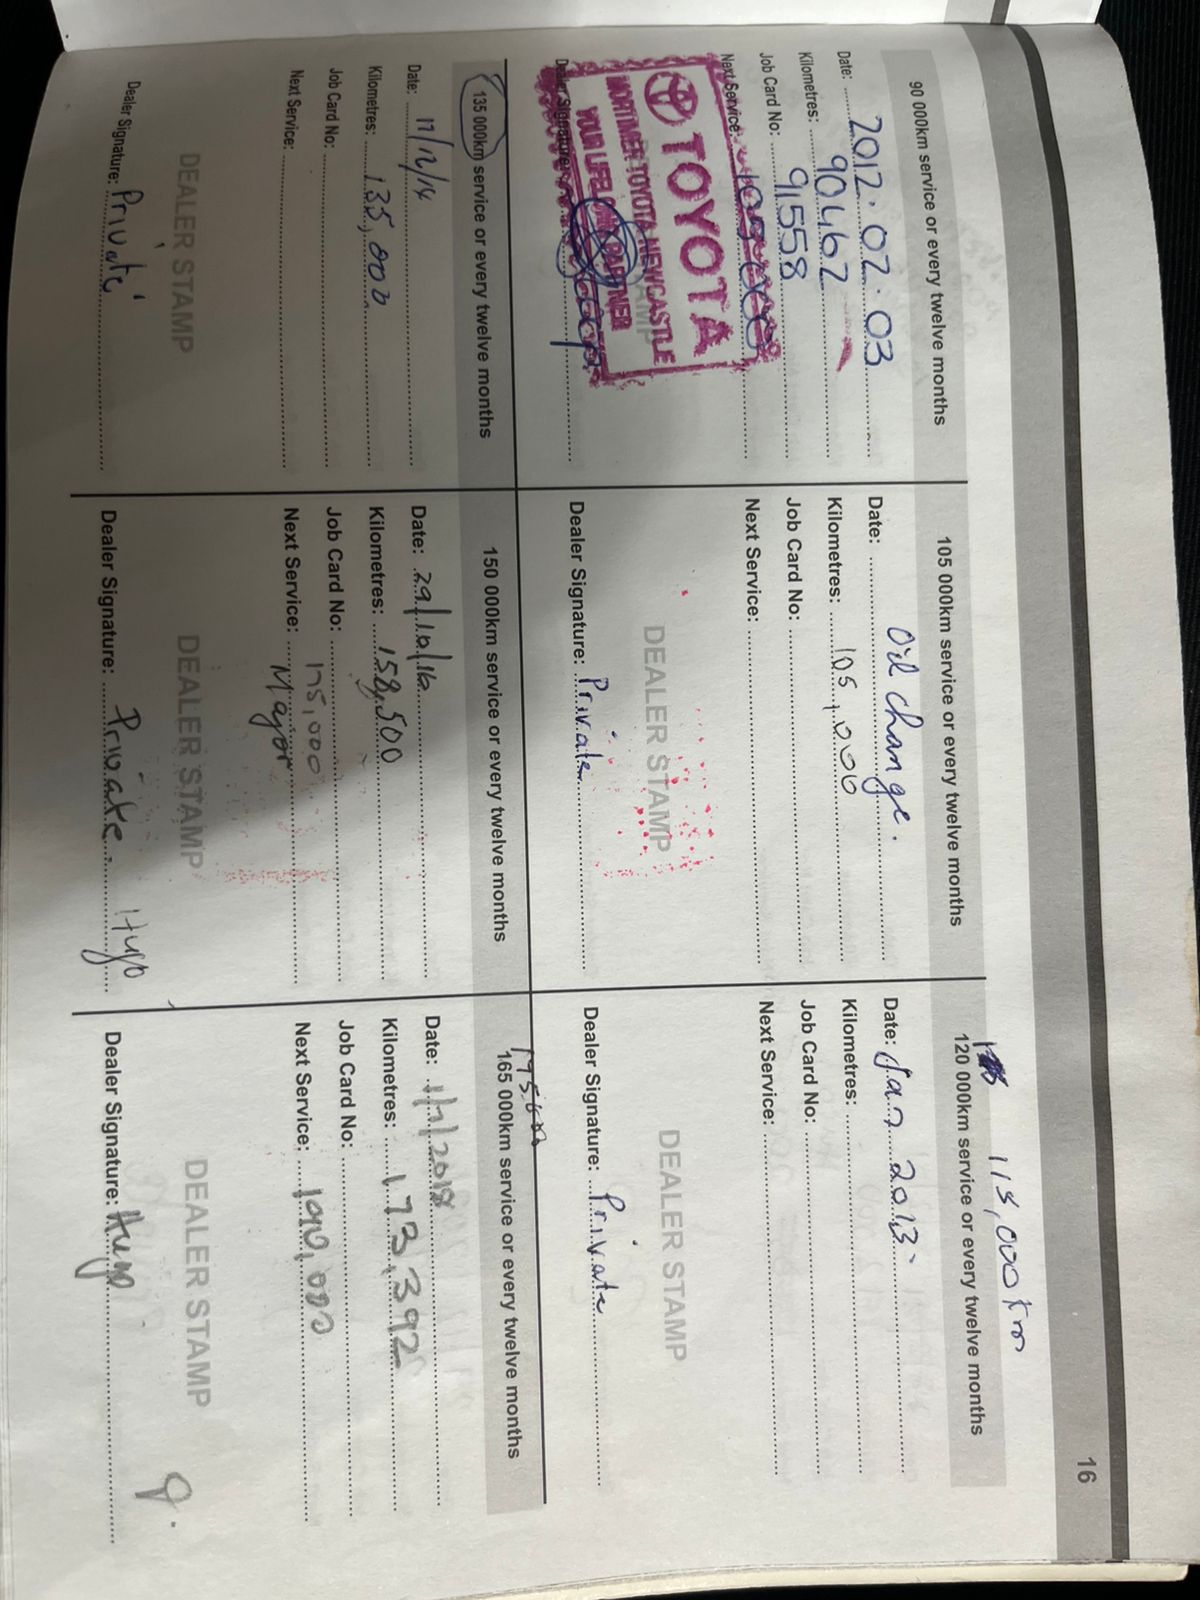 16
90 000km service or every twelve months
Date: 2012.02.03
Kilometres: 90462
Job Card No: 91558
Next Service: 105 000
TOYOTA
MORTIMER TOYOTA NEWCASTLE
YOUR LIFELONG PARTNER
Dealer Signature:
105 000km service or every twelve months
Date: Oil change.
Kilometres: 105,000
Job Card No:
Next Service:
DEALER STAMP
Dealer Signature: Private
115,000km
120 000km service or every twelve months
Date: Jan 2013
Kilometres:
Job Card No:
Next Service:
DEALER STAMP
Dealer Signature: Private
135 000km service or every twelve months
Date: 17/12/14
Kilometres: 135,000
Job Card No:
Next Service:
DEALER STAMP
Dealer Signature: Private
150 000km service or every twelve months
Date: 29/10/16
Kilometres: 158,500
Job Card No:
175,000
Next Service: Major
DEALER STAMP
Dealer Signature: Private. Hugo
165 000km service or every twelve months
Date: 1/1/2018
Kilometres: 173,392
Job Card No:
Next Service: 190,000
DEALER STAMP
Dealer Signature: Hugo